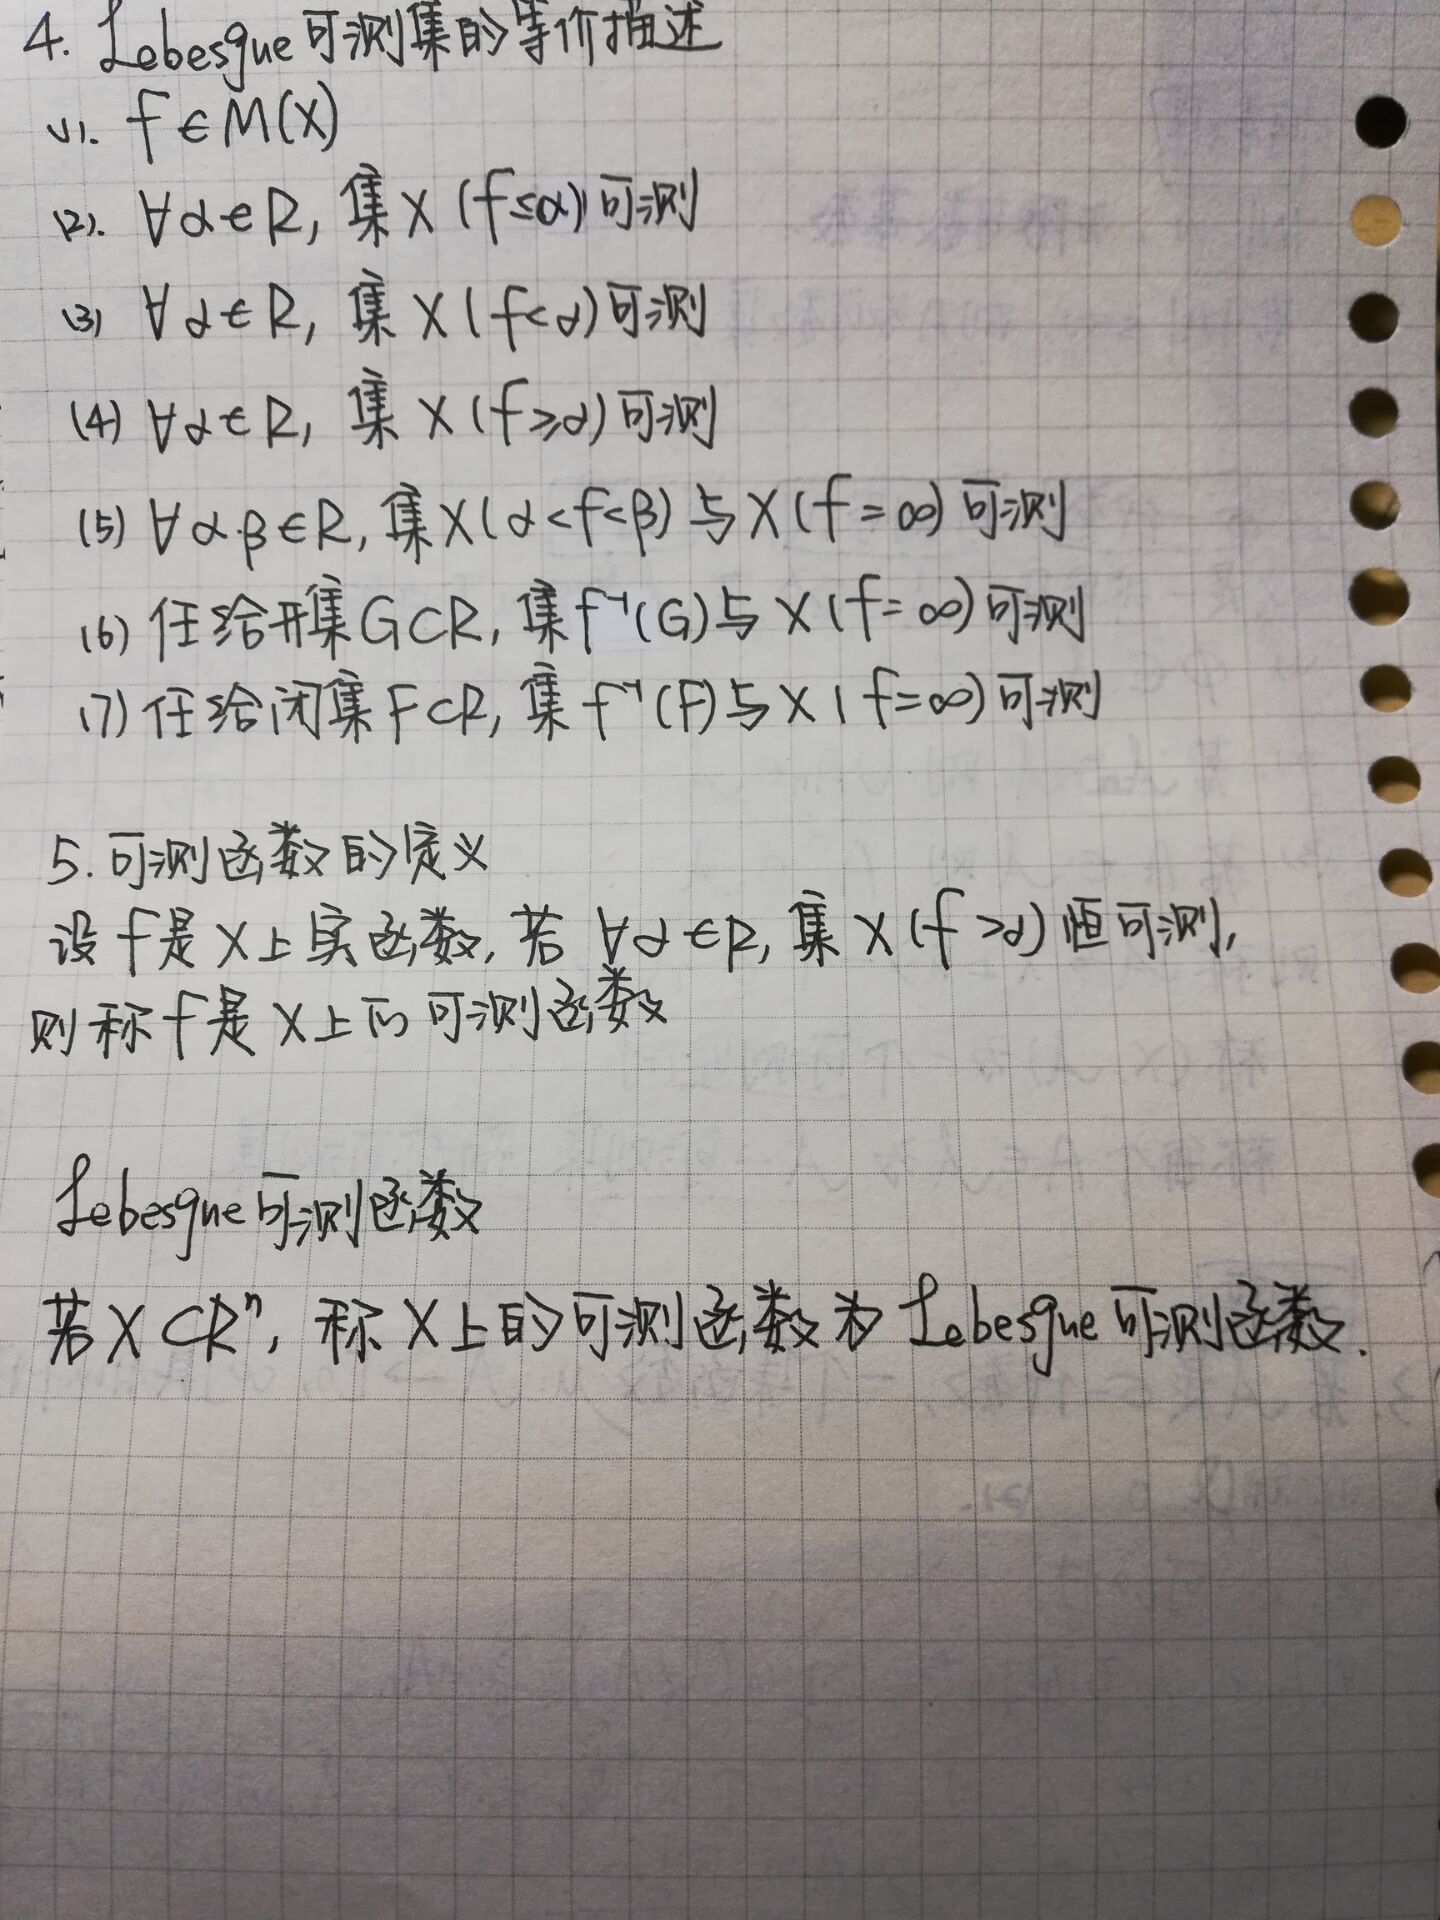 4. Lebesgue可测集的等价描述
(1). f∈M(X)
(2). ∀α∈R, 集X(f≤α)可测
(3) ∀α∈R, 集X(f<α)可测
(4) ∀α∈R, 集X(f≥α)可测
(5) ∀α.β∈R, 集X(α<f<β)与X(f=∞)可测
(6) 任给开集G⊂R, 集f⁻¹(G)与X(f=∞)可测
(7) 任给闭集F⊂R, 集f⁻¹(F)与X(f=∞)可测
5. 可测函数的定义
设f是X上实函数, 若∀α∈R, 集X(f>α)恒可测,
则称f是X上的可测函数
Lebesgue可测函数
若X⊂Rⁿ, 称X上的可测函数为Lebesgue可测函数.